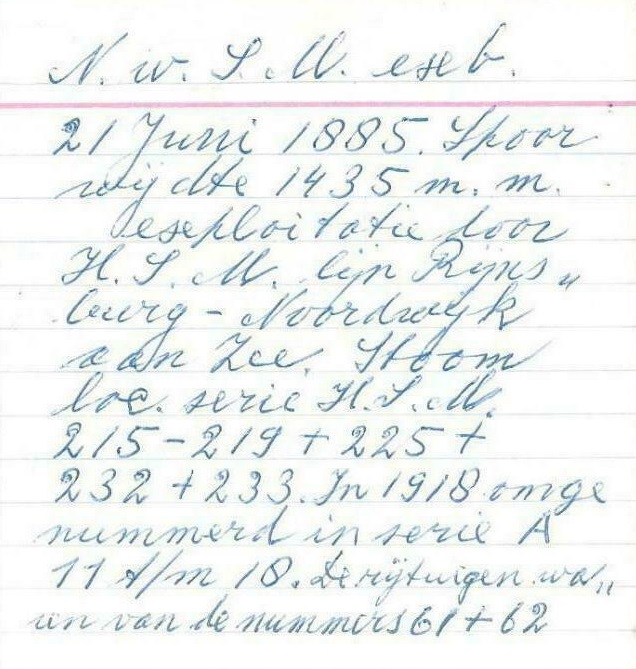 N. w. S. M. exeb.
21 Juni 1885. Spoor
wijdte 1435 m. m.
exeploitatie door
H. S. M. lijn Rijns„
burg - Noordwijk
aan Zee. Stoom
loc. serie H. S. M.
215 - 219 + 225 +
232 + 233. In 1918 omge
nummerd in serie A
11 t/m 18. De rijtuigen wa„
ren van de nummers 61 + 62